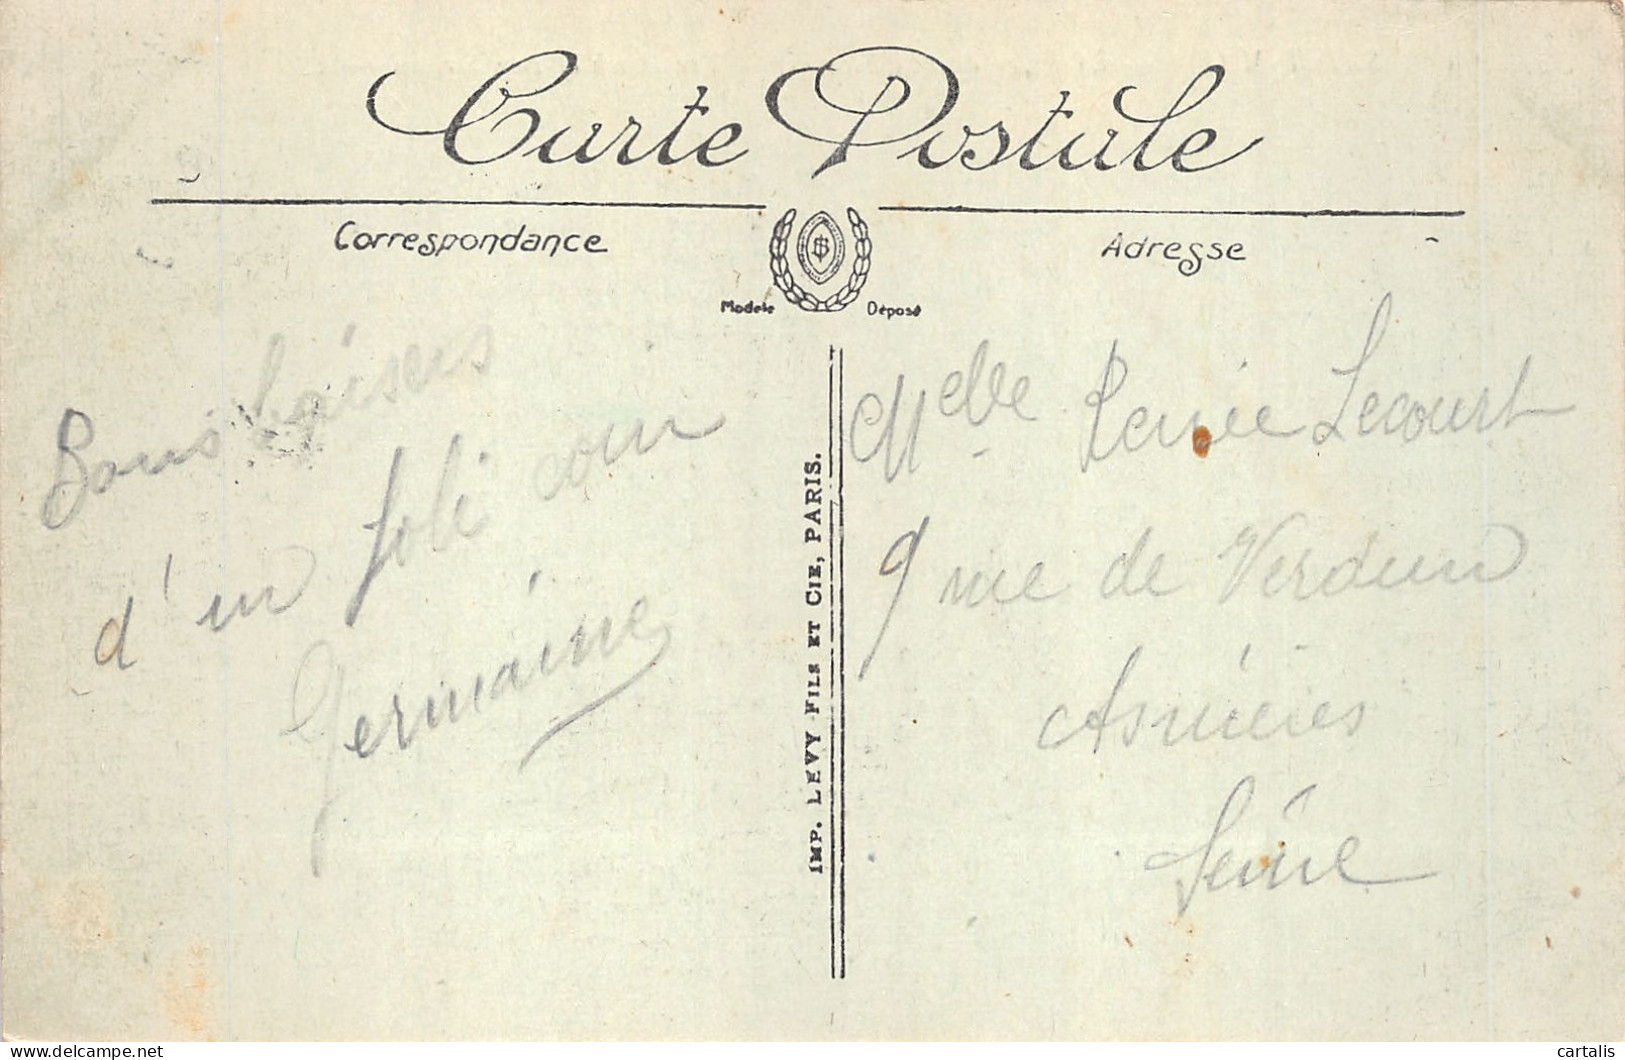 Carte Postale
Correspondance
Adresse
Modèle Déposé
Bons baisers
d'un joli coin
Germaine
IMP. LEVY FILS ET CIE, PARIS.
Melle Renée Lecourt
9 rue de Verdun
Asnières
Seine
delcampe.net
cartalis